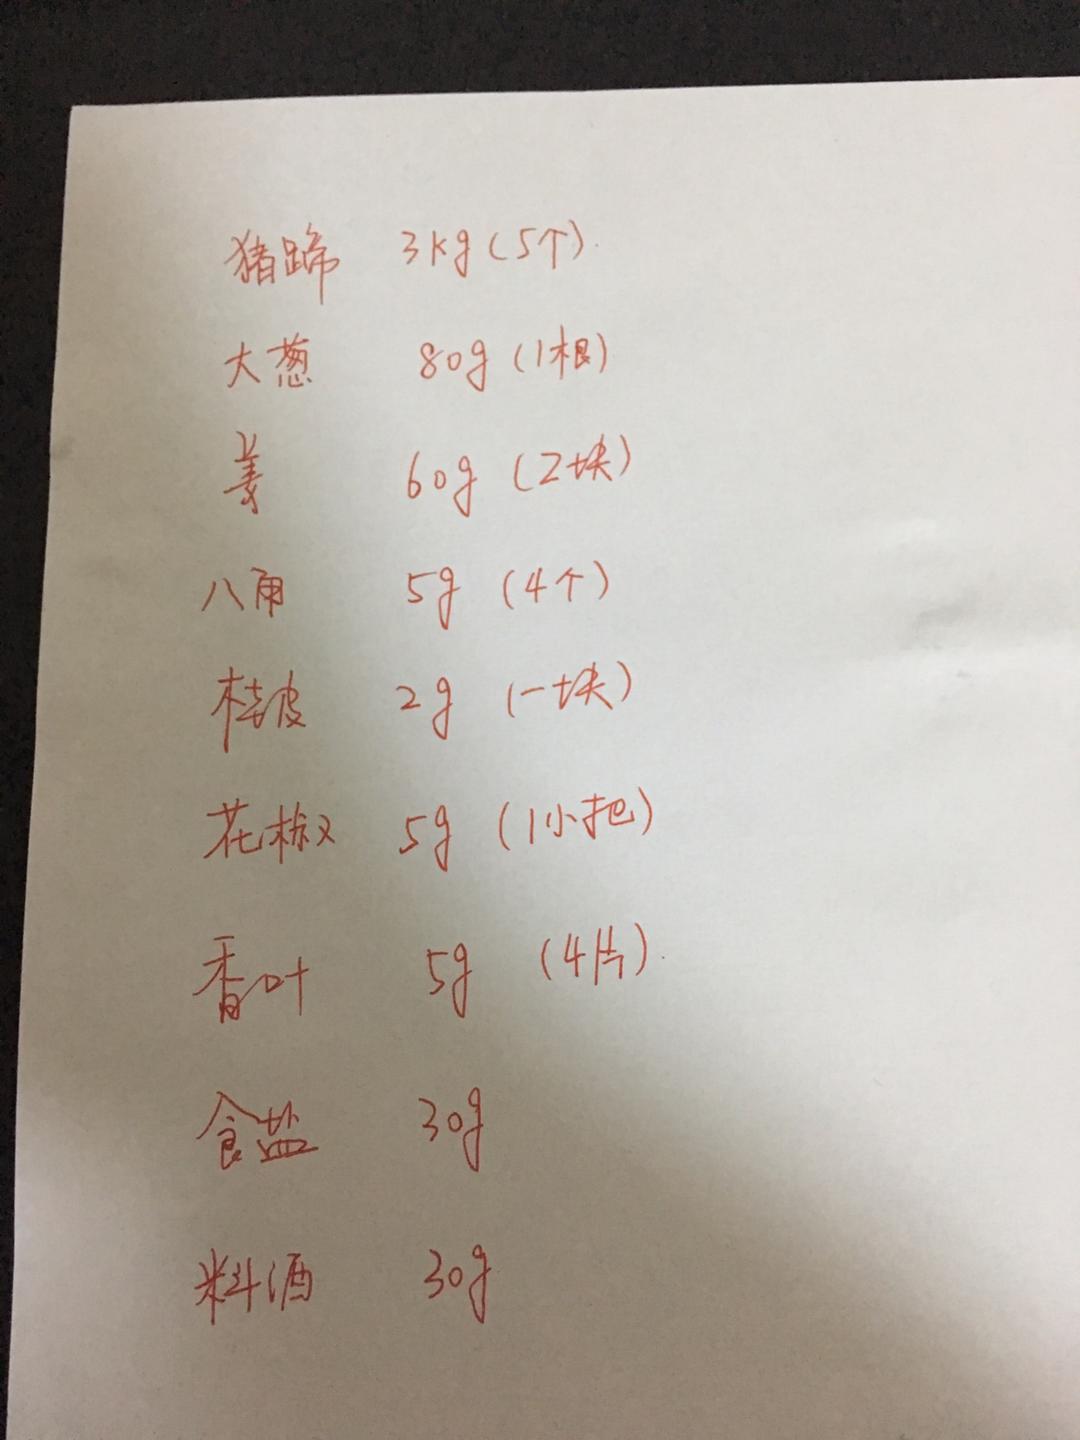 猪蹄 3kg(5个)
大葱 80g(1根)
姜 60g(2块)
八角 5g(4个)
桂皮 2g(一块)
花椒 5g(1小把)
香叶 5g(4片)
食盐 30g
料酒 30g